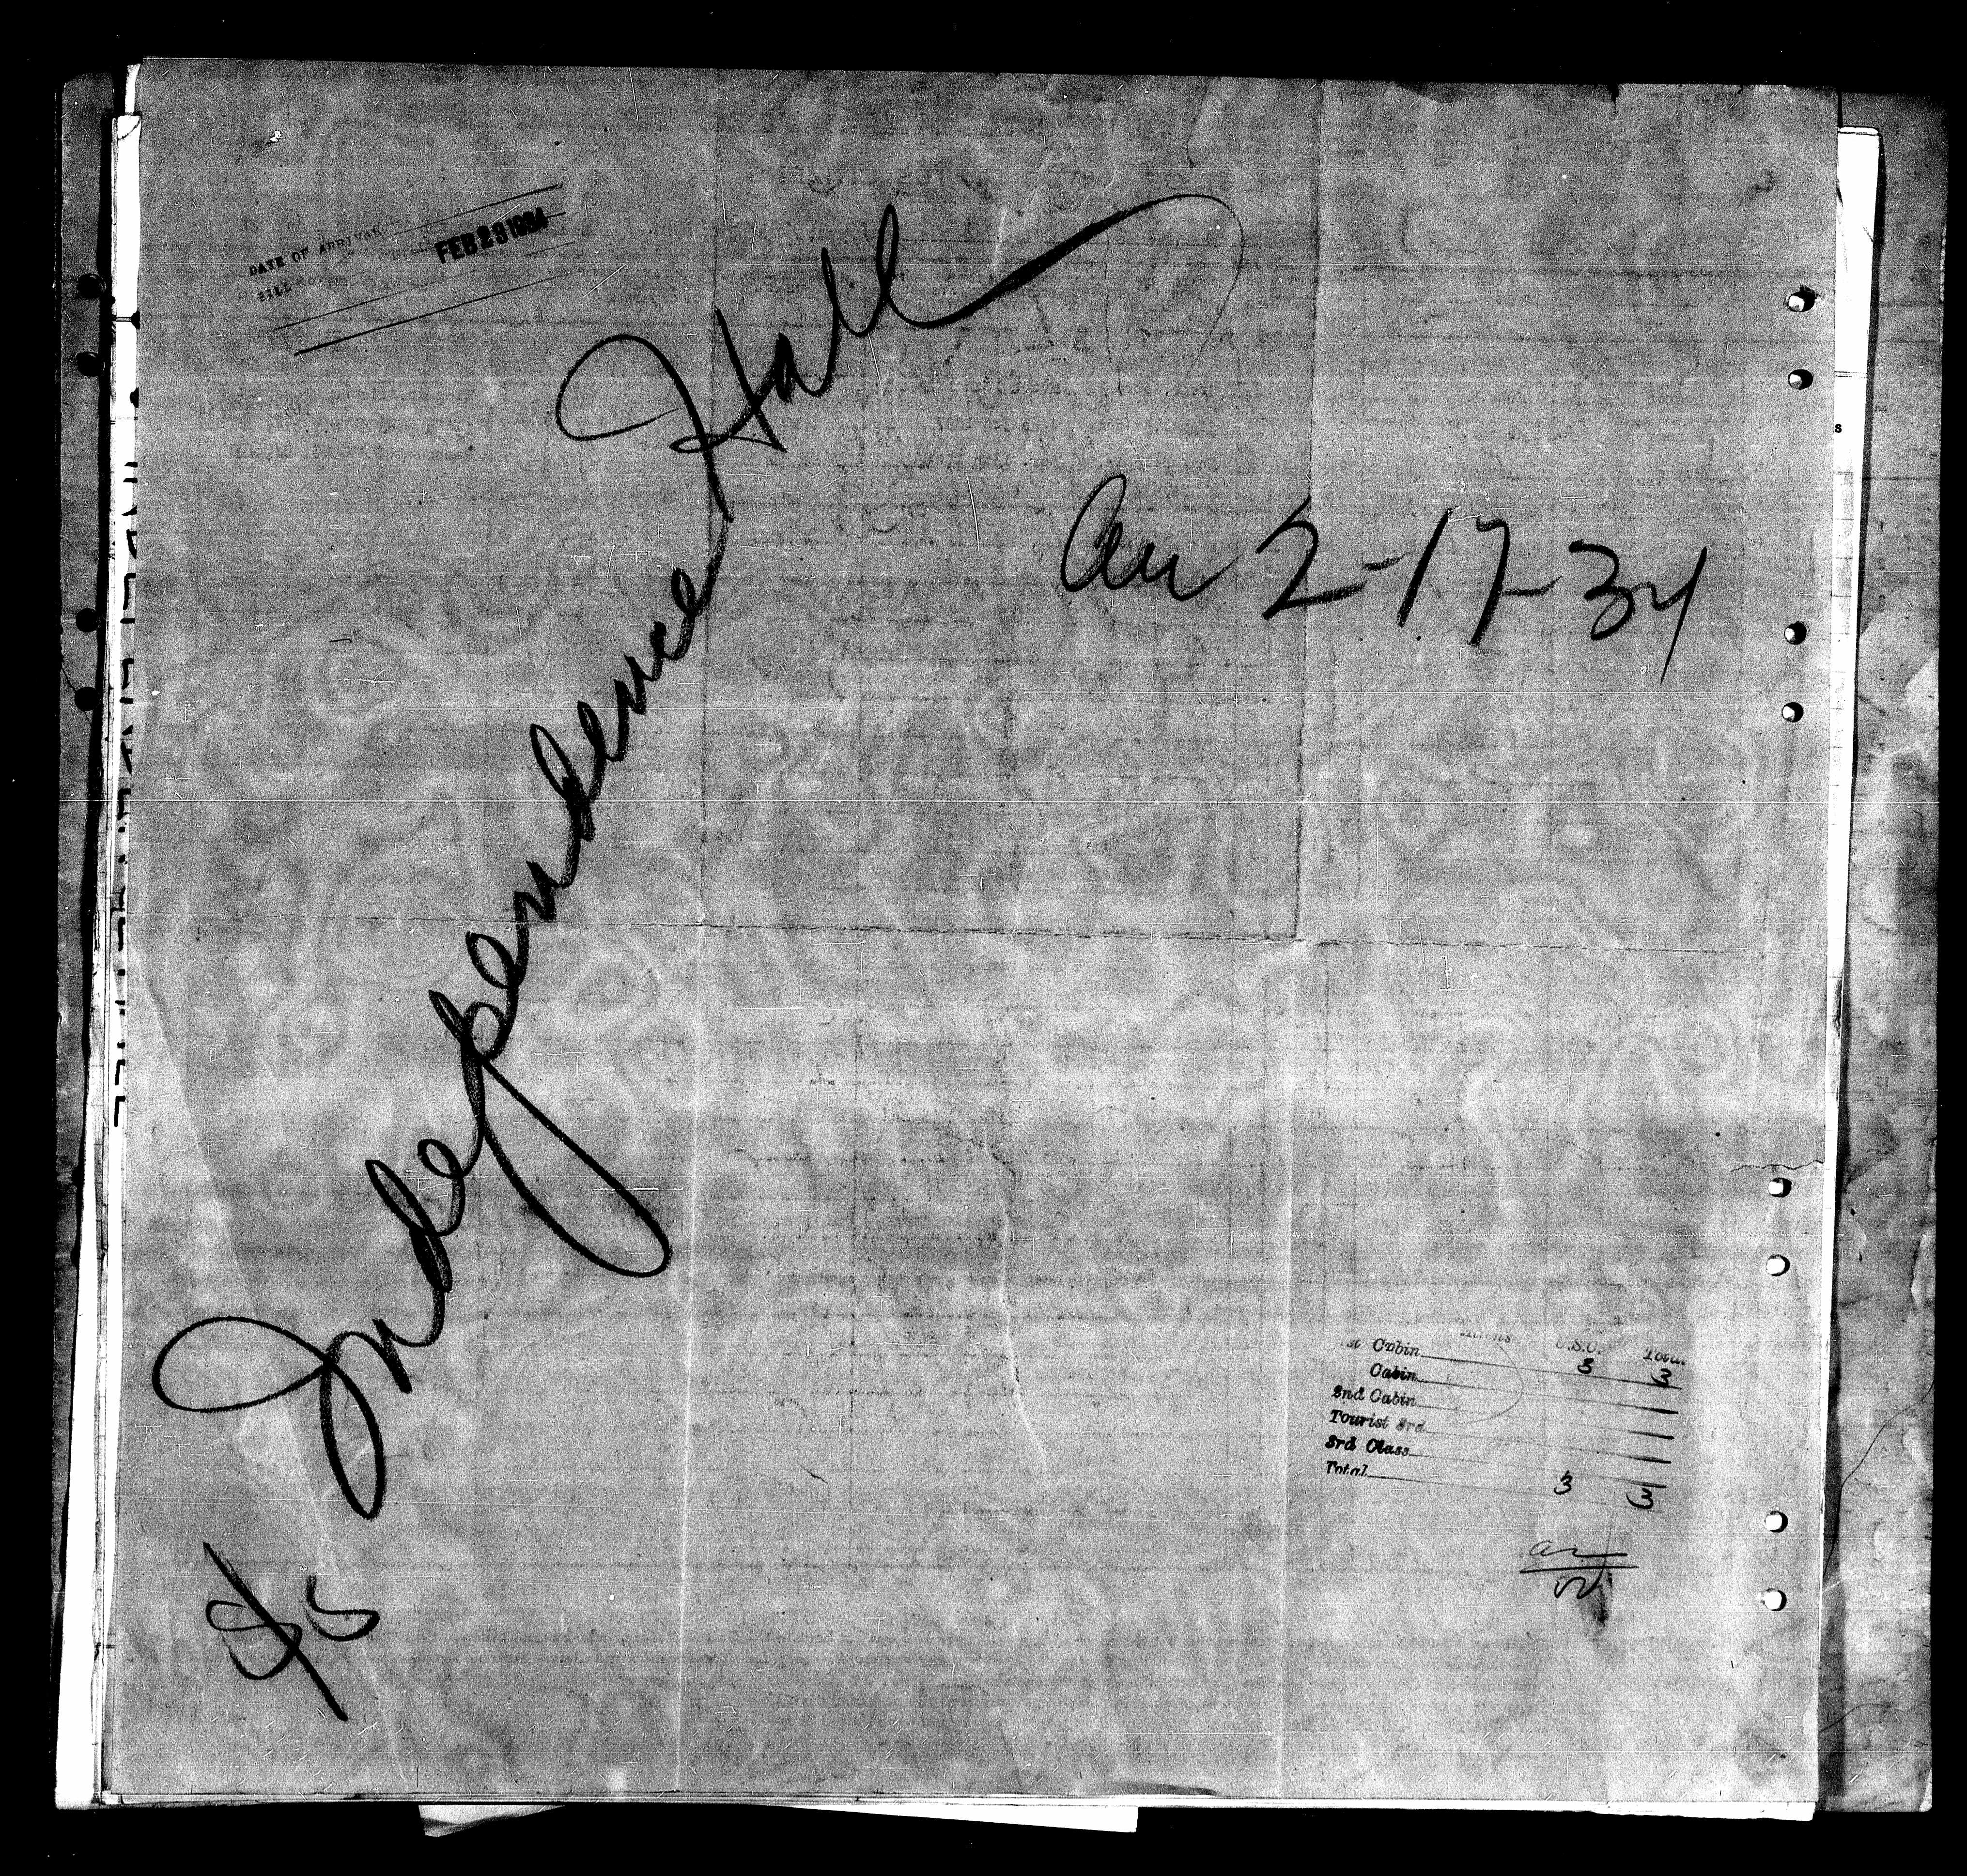 DATE OF ARRIVAL FEB 23 1934
BILL NO.
SS Independence Hall
arr 2-17-34
Aliens U.S.C. Total
1st Cabin 3 3
Cabin
2nd Cabin
Tourist 3rd
3rd Class
Total 3 3